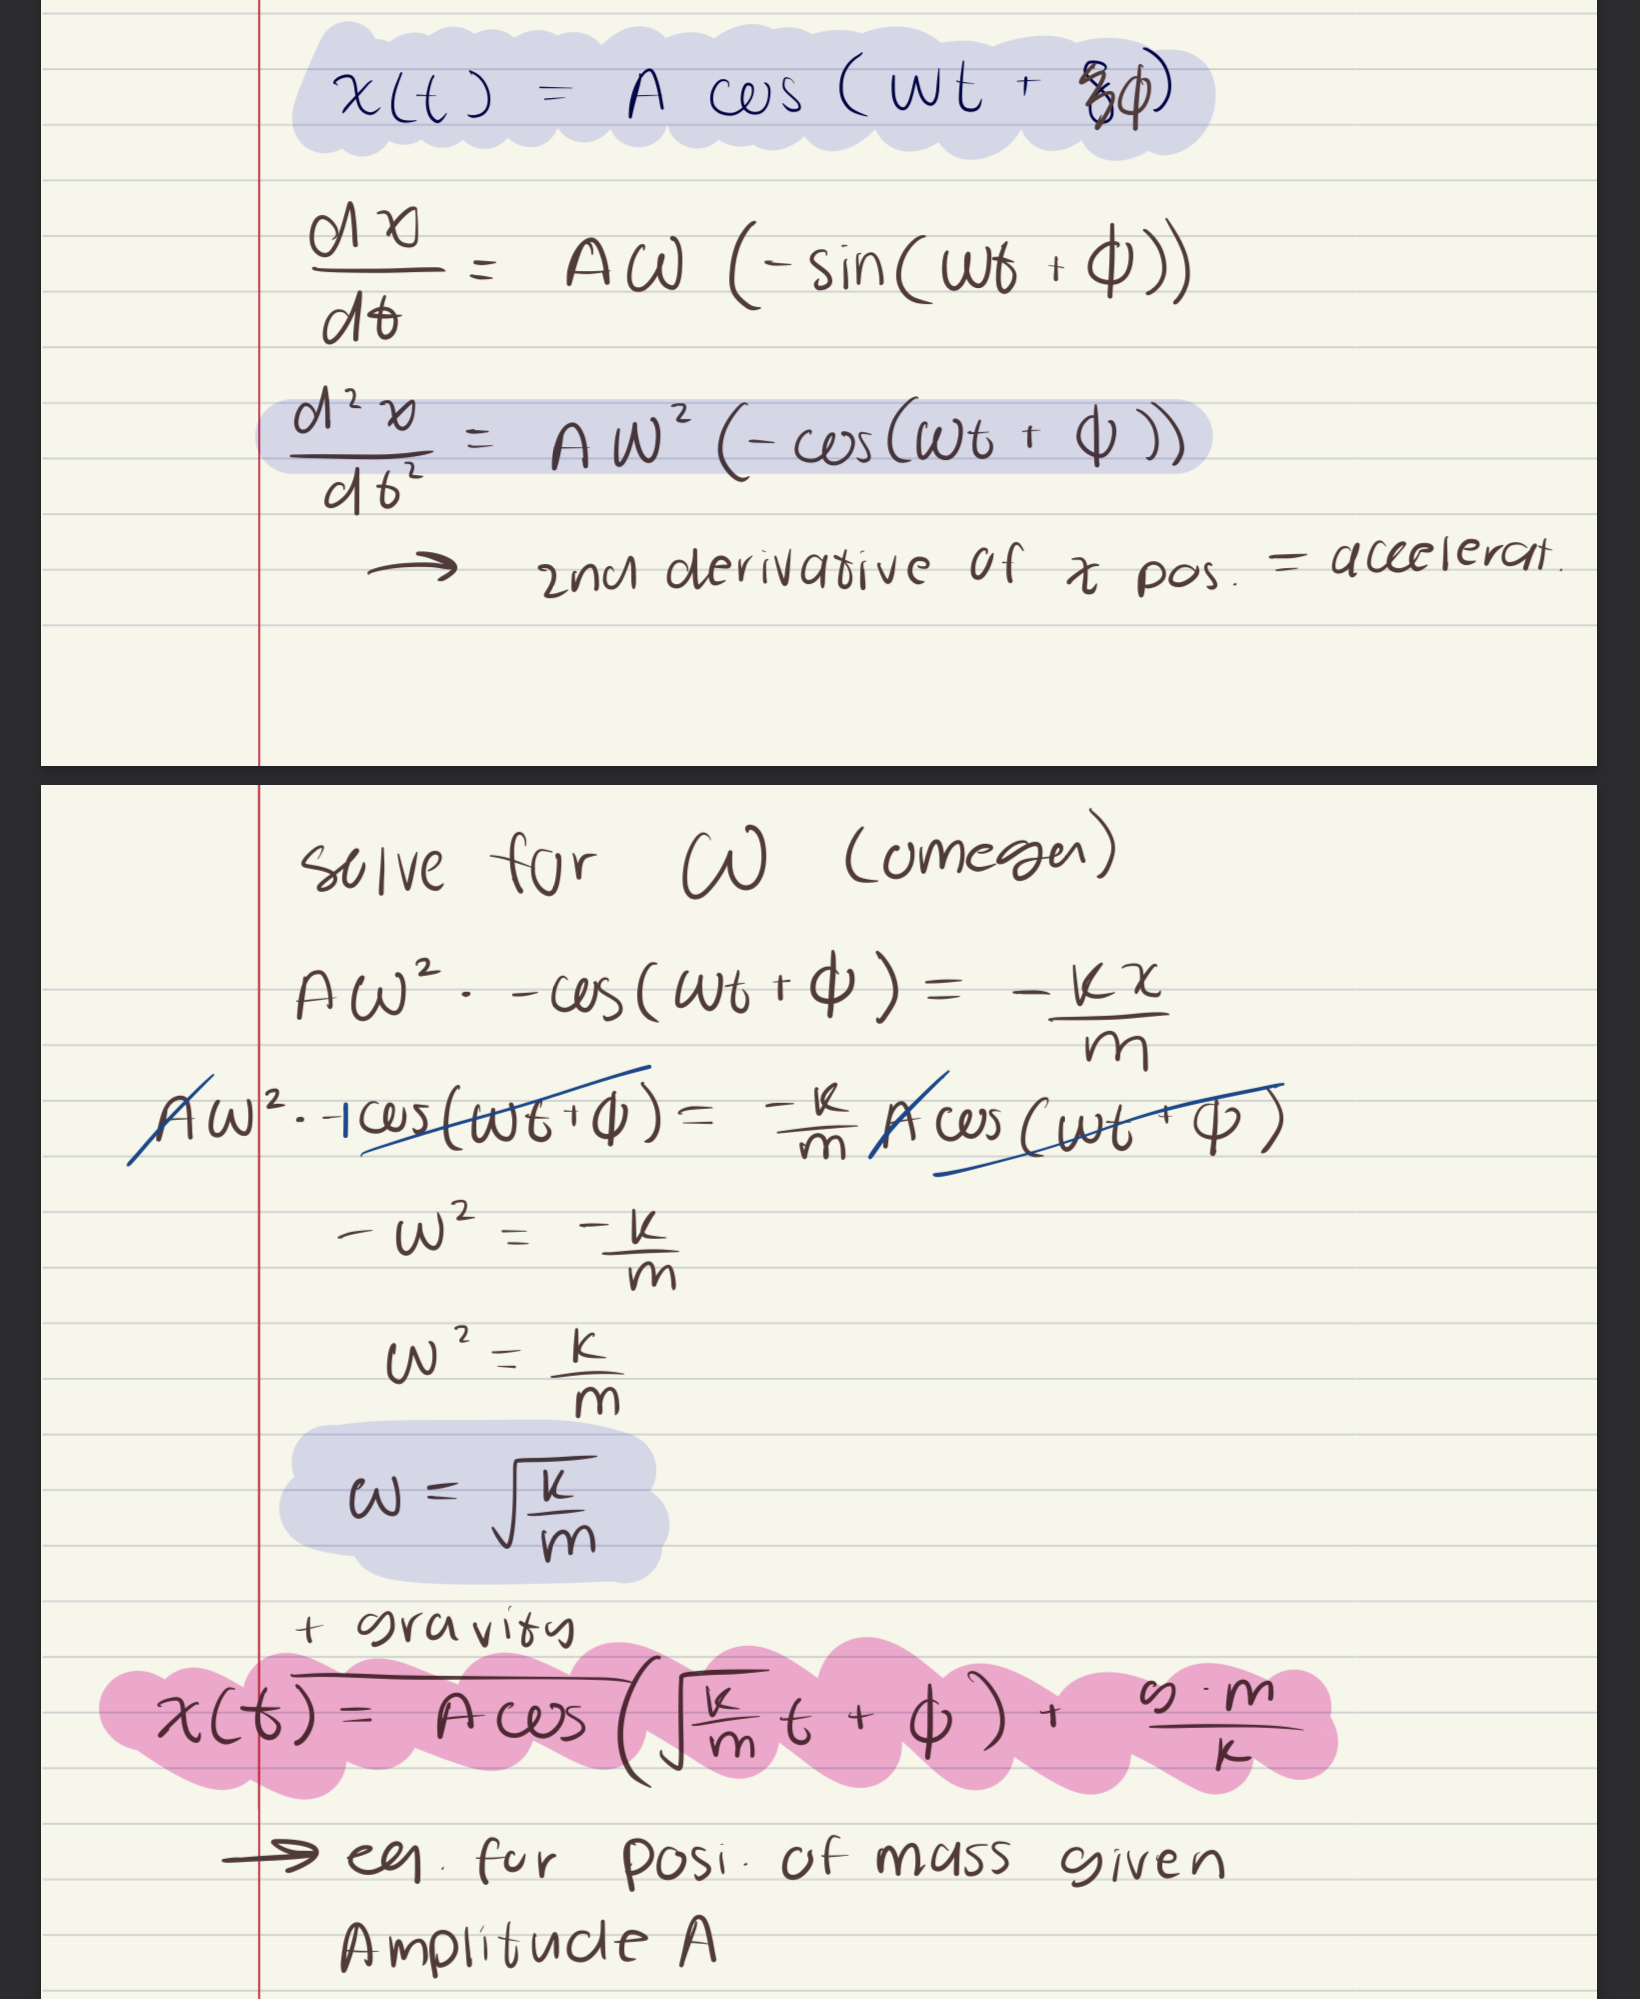 x(t) = A cos (ωt + ϕ)
dx/dt = Aω (-sin(ωt + ϕ))
d²x/dt² = Aω² (-cos(ωt + ϕ))
→ 2nd derivative of x pos. = accelerat.
solve for ω (omega)
Aω² · -cos(ωt + ϕ) = - kx/m
Aω² · -1cos(ωt + ϕ) = -k/m A cos(ωt + ϕ)
-ω² = -k/m
ω² = k/m
ω = √(k/m)
+ gravity
x(t) = A cos(√(k/m) t + ϕ) + g·m/k
→ eq. for posi. of mass given
Amplitude A